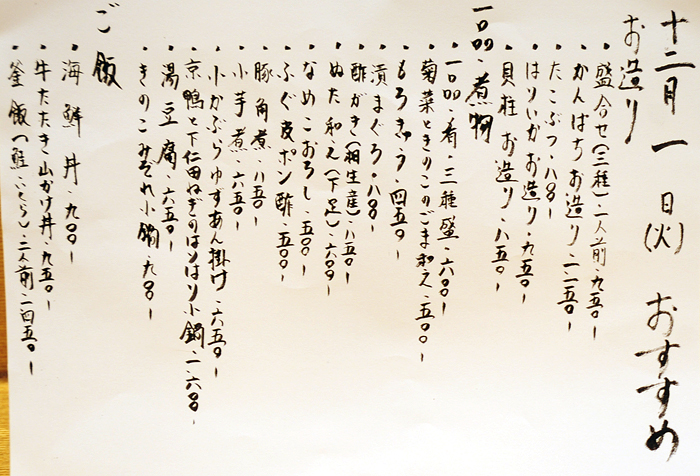 十二月一日(火) おすすめ
お造り
・盛合せ(三種)一人前・九五〇ー
・かんぱちお造り・一二五〇ー
・たこぶつ・八〇〇ー
・はりいかお造り・九五〇ー
・貝柱お造り・八五〇ー
一品・煮物
・一品・肴・三種盛・六〇〇ー
・菊菜ときのこのごま和え・五〇〇ー
・もろきゅう・四五〇ー
・漬まぐろ・八〇〇ー
・酢がき(相生産)・八五〇ー
・ぬた和え(下足)・六〇〇ー
・なめこおろし・五〇〇ー
・ふぐ皮ポン酢・五〇〇ー
・豚角煮・八五〇ー
・小芋煮・六五〇ー
・小かぶらゆずあん掛け・六五〇ー
・京鴨と下仁田ねぎのはりはり小鍋・一六〇〇ー
・湯豆腐・六五〇ー
・きのこみぞれ小鍋・九〇〇ー
ご飯
・海鮮丼・九〇〇ー
・牛たたき山かけ丼・九五〇ー
・釜飯(鮭・いくら)・二人前・一四五〇ー